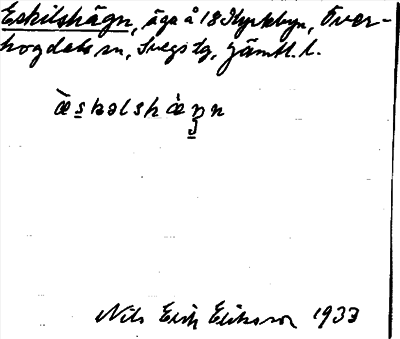 Eskilshägn, äga å 18 Kyrkbyn, Över-
hogdals sn, Svegs tg, Jämtl. l.
æ̀skəlshæ̀ŋn
Nils Erik Eriksson 1933